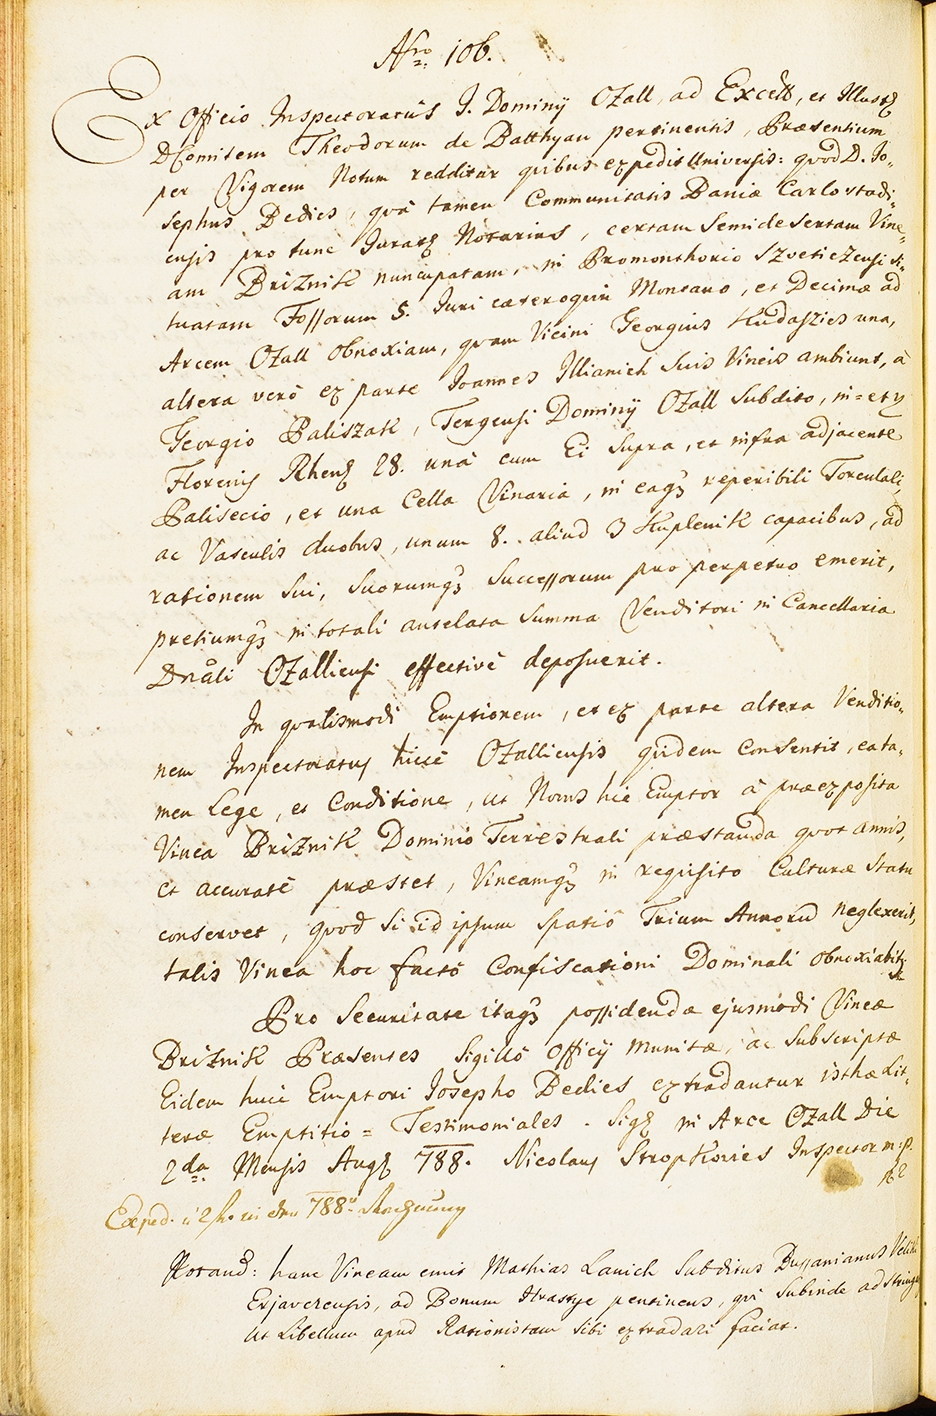 Nro 106.
Ex Officio Inspectoratûs I. Dominij Ozall, ad Excell, et Illustr
D Comitem Theodorum de Batthyan pertinentis, Præsentium
per Vigorem Notum redditur quibus expedit Universis: quod D. Jo-
sephus Dedics, quà tamen Communitatis Daniæ Carlostadi-
ensis pro tunc Jurat Notarius, certam Semidesertam Vine-
am Briznik nuncupatam, in Promonthorio Szveticzensi si-
tuatam Fossorum 5. Juri cæteroquin Montano, et Decimæ ad
Arcem Ozall obnoxiam, quam Vicini Georgius Kudaszics una,
altera verò ex parte Joannes Illianich suis Vineis ambiunt, à
Georgio Paliszak, Tergensi Dominij Ozall Subdito, in = et
Florenis Rhen 28. unà cum Ei supra, et infra adjacente
Palisecio, et una Cella Vinaria, in eaq reperibili Torculali,
ac Vasculis duobus, unum 8. aliud 3 Kuplenik capacibus, ad
rationem sui, suorumq Successorum pro perpetuo emerit,
pretiumq in totali antelata Summa Venditori in Cancellaria
Dnali Ozalliensi effectivè deposuerit.
In qualismodi Emptionem, et ex parte altera Venditio-
nem Inspectoratus hicce Ozalliensis quidem consentit, eata-
men Lege, et Conditione, ut Novus hic Emptor à præexposita
Vinea Briznik Dominio Terrestrali præstanda quot annis,
et accuratè præstet, Vineamq in requisito Culturæ Statu
conservet, quod si id ipsum spatiô Trium Annoru neglexerit,
talis Vinea hoc factô Confiscationi Dominali obnoxiabit
Pro Securitate itaq possidendæ ejusmodi Vineæ
Briznik Præsentes Sigillô Officij munitæ, ac Subscriptæ
Eidem huic Emptori Josepho Dedics extradantur isthæ Lit-
teræ Emptitio = Testimoniales. Sig in Arce Ozall Die
2da Mensis Aug 788. Nicolaus Stropkovics Inspector m:p.
Exped. 788
Notand: hanc Vineam emit Mathias Lanich Subditus Bussanianus
Erjavecensis, ad Bonum pertinens, qui subinde
ut Libellum apud Rationistam sibi extradari faciat.